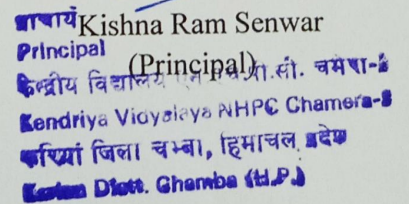 प्राचार्य
Kishna Ram Senwar
Principal
(Principal)
केन्द्रीय विद्यालय एन.एच.पी.सी. चमेरा-2
Kendriya Vidyalaya NHPC Chamera-2
करियां जिला चम्बा, हिमाचल प्रदेश
Distt. Chamba (H.P.)